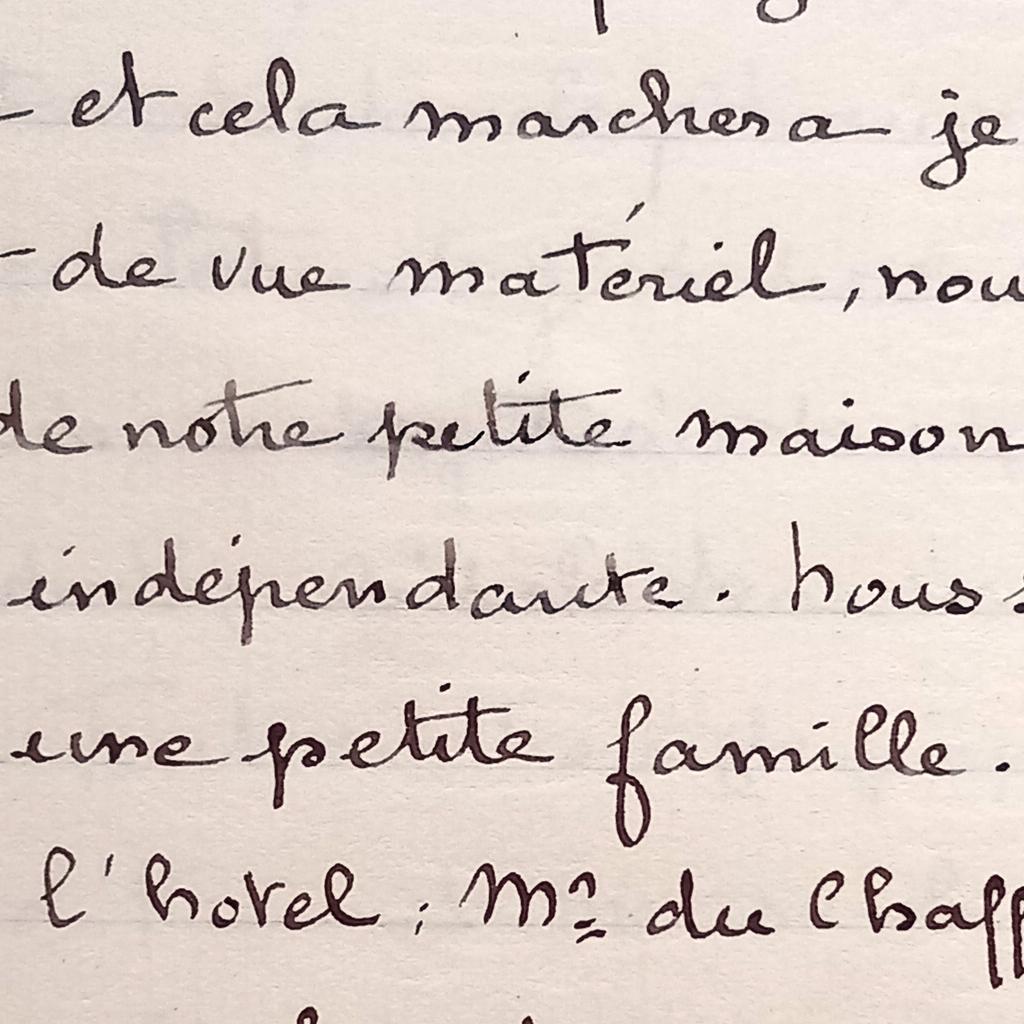 et cela marchera je
de vue matériel, nou
de notre petite maison
indépendante. Nous s
une petite famille.
l'hotel ; Mr du Chaff